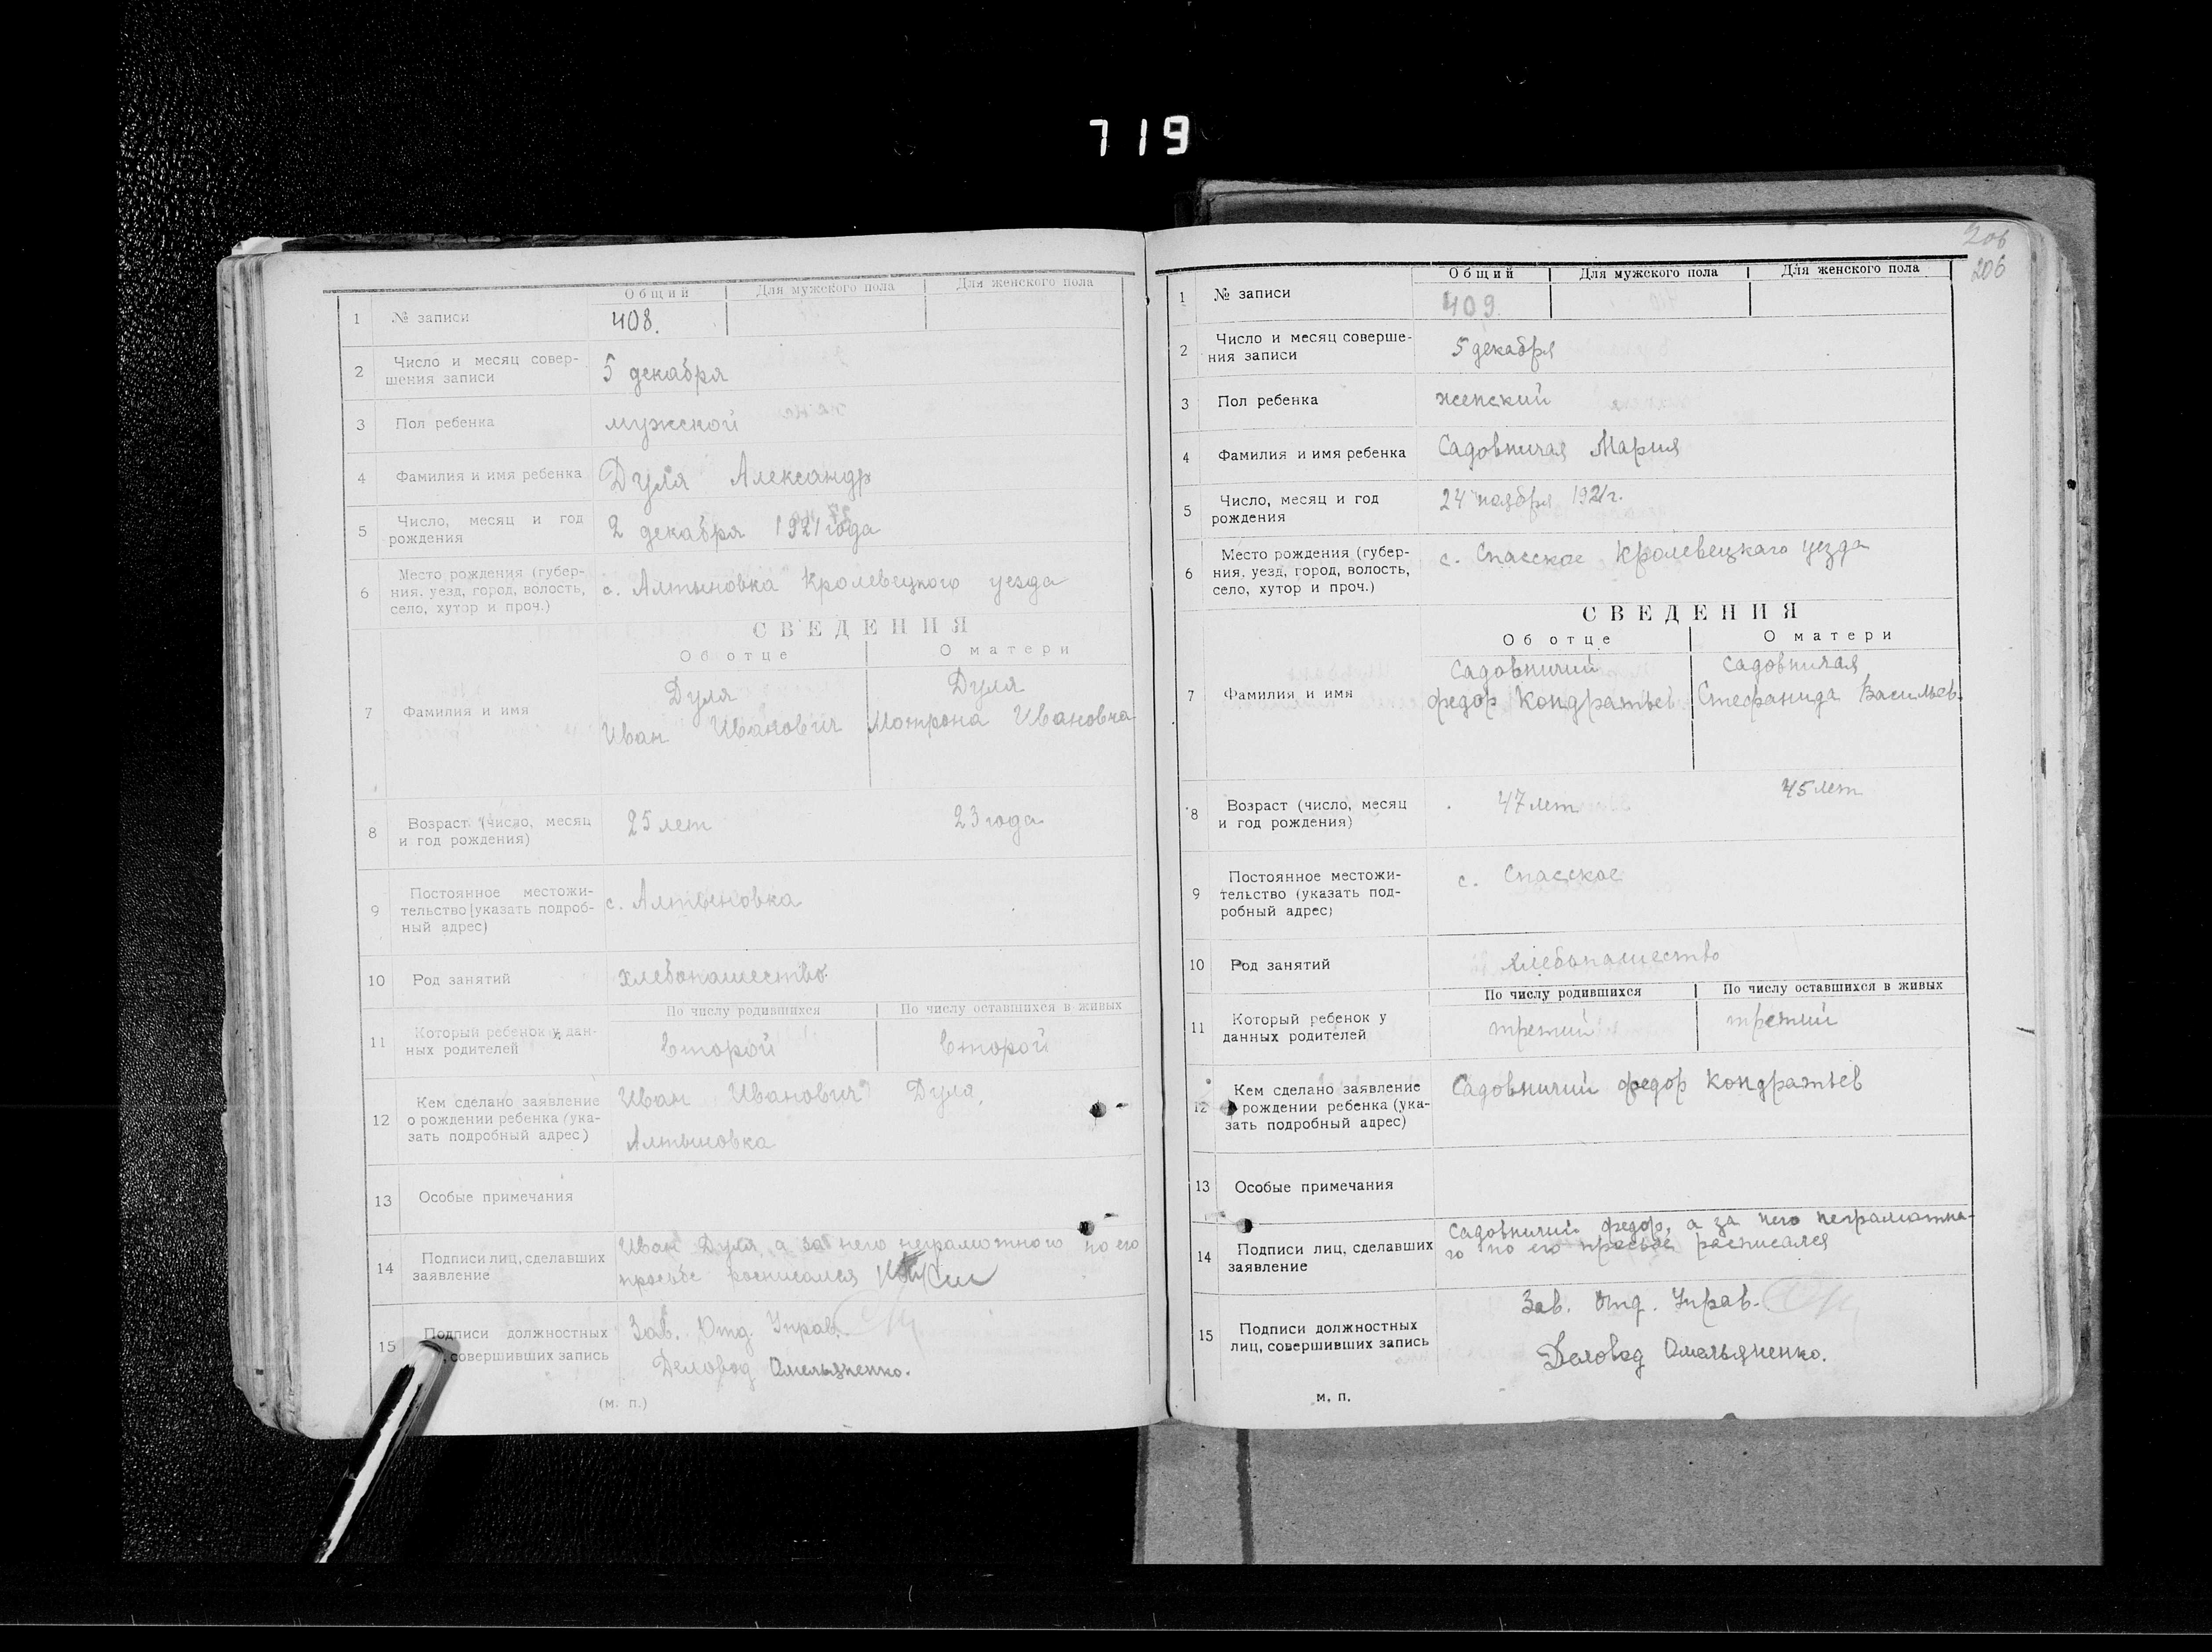 719
Общий Для мужского пола Для женского пола
1 № записи 408.
2 Число и месяц совер-
шения записи 5 декабря
3 Пол ребенка мужской
4 Фамилия и имя ребенка Дуля Александр
5 Число, месяц и год
рождения 2 декабря 1921 года
6 Место рождения (губер-
ния, уезд, город, волость,
село, хутор и проч.) с. Алтыновка Кролевецкого уезда
СВЕДЕНИЯ
Об отце О матери
Дуля Дуля
7 Фамилия и имя Иван Иванович Мотрона Ивановна
8 Возраст (число, месяц
и год рождения) 25 лет 23 года
9 Постоянное местожи-
тельство [указать подроб-
ный адрес) с. Алтыновка
10 Род занятий хлебопашество
По числу родившихся По числу оставшихся в живых
11 Который ребенок у дан-
ных родителей второй второй
12 Кем сделано заявление
о рождении ребенка (ука-
зать подробный адрес) Иван Иванович Дуля,
Алтыновка
13 Особые примечания
14 Подписи лиц, сделавших
заявление Иван Дуля, а за него неграмотного по его
просьбе росписался
15 Подписи должностных
совершивших запись Зав. Отд. Управ.
Деловод Омельяненко.
(м. п.)
206
206
Общий Для мужского пола Для женского пола
1 № записи 409.
2 Число и месяц соверше-
ния записи 5 декабря
3 Пол ребенка женский
4 Фамилия и имя ребенка Садовничая Мария
5 Число, месяц и год
рождения 24 ноября 1921 г.
6 Место рождения (губер-
ния, уезд, город, волость,
село, хутор и проч.) с. Спасское Кролевецкаго уезда
СВЕДЕНИЯ
Об отце О матери
Садовничий Садовничая
7 Фамилия и имя федор Кондратьев Стефанида Васильев.
8 Возраст (число, месяц
и год рождения) 47 лет 45 лет
9 Постоянное местожи-
тельство (указать под-
робный адрес) с. Спасское
10 Род занятий хлебопашество
По числу родившихся По числу оставшихся в живых
11 Который ребенок у
данных родителей третий третий
12 Кем сделано заявление
рождении ребенка (ука-
зать подробный адрес) Садовничий федор Кондратьев
13 Особые примечания
14 Подписи лиц, сделавших
заявление Садовничий федор, а за него неграмотна-
го по его просьбе расписался
15 Подписи должностных
лиц, совершивших запись Зав. Отд. Управ.
Деловод Омельяненко.
м. п.